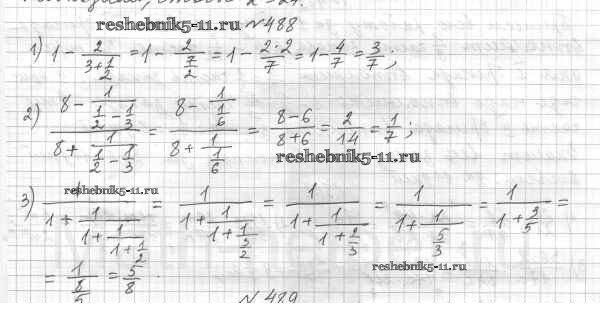 reshebnik5-11.ru №488
1) 1 - 2/(3+1/2) = 1 - 2/(7/2) = 1 - (2·2)/7 = 1 - 4/7 = 3/7 ;
2) (8 - 1/(1/2 - 1/3))/(8 + 1/(1/2 - 1/3)) = (8 - 1/(1/6))/(8 + 1/(1/6)) = (8-6)/(8+6) = 2/14 = 1/7 ;
reshebnik5-11.ru
reshebnik5-11.ru
3) 1/(1 + 1/(1 + 1/(1 + 1/2))) = 1/(1 + 1/(1 + 1/(3/2))) = 1/(1 + 1/(1 + 2/3)) = 1/(1 + 1/(5/3)) = 1/(1 + 3/5) =
reshebnik5-11.ru
= 1/(8/5) = 5/8 .
№489